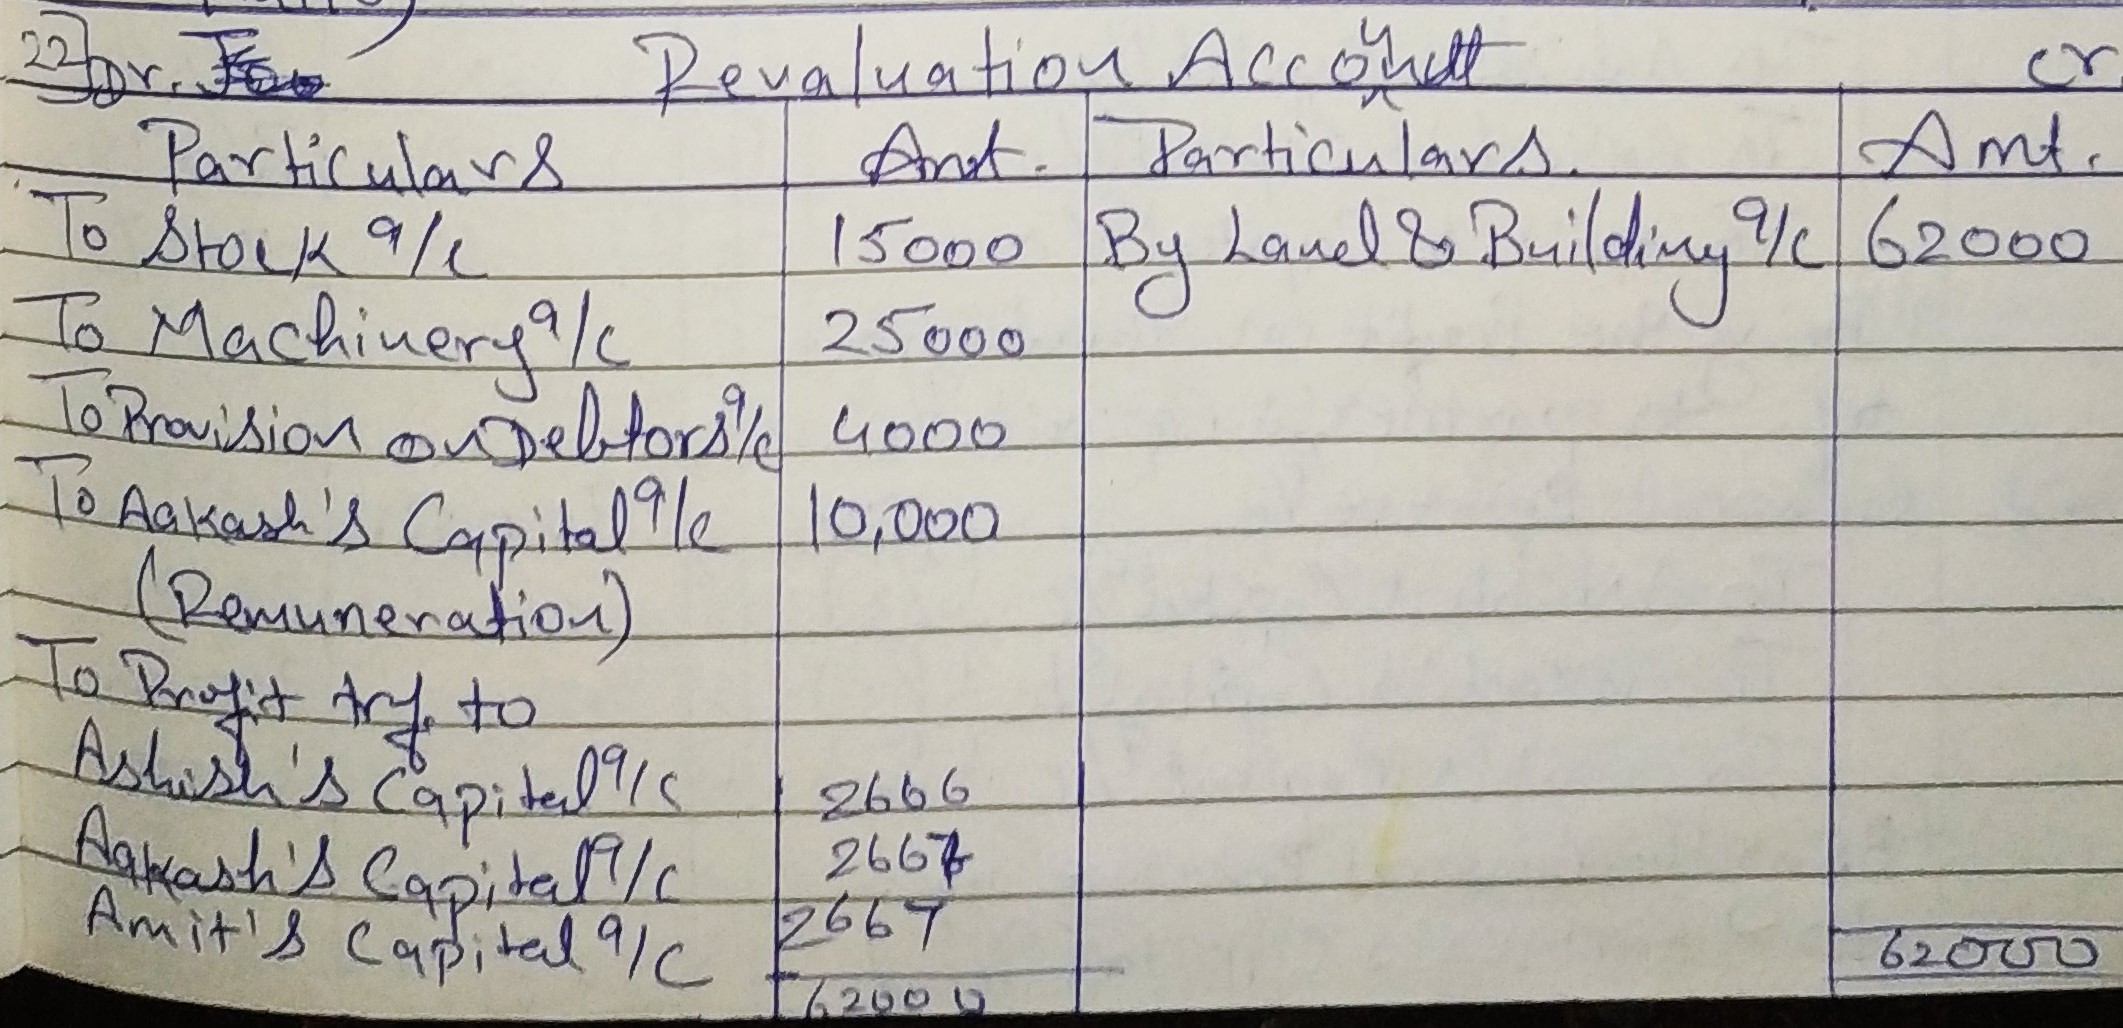 22) Dr. Revaluation Account cr.
Particulars Amt. Particulars. Amt.
To Stock a/c 15000 By Land & Building a/c 62000
To Machinery a/c 25000
To Provision on Debtors a/c 4000
To Aakash's Capital a/c 10,000
(Remuneration)
To Profit trf. to
Ashish's Capital a/c 2666
Aakash's Capital a/c 2667
Amit's Capital a/c 2667
62000 62000